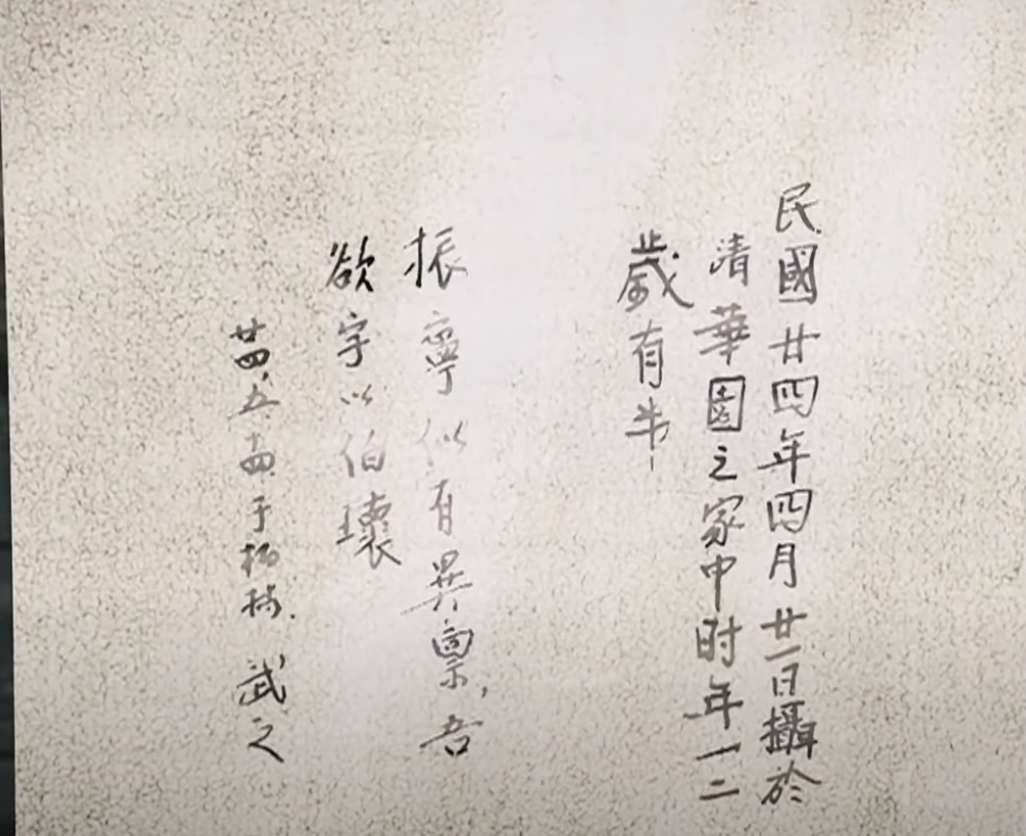 民國廿四年四月廿一日攝於
清華園之家中时年一二
歲有半
振寧似有異禀,吾
欲字以伯瓌
廿四、五、廿四、于柏林. 武之